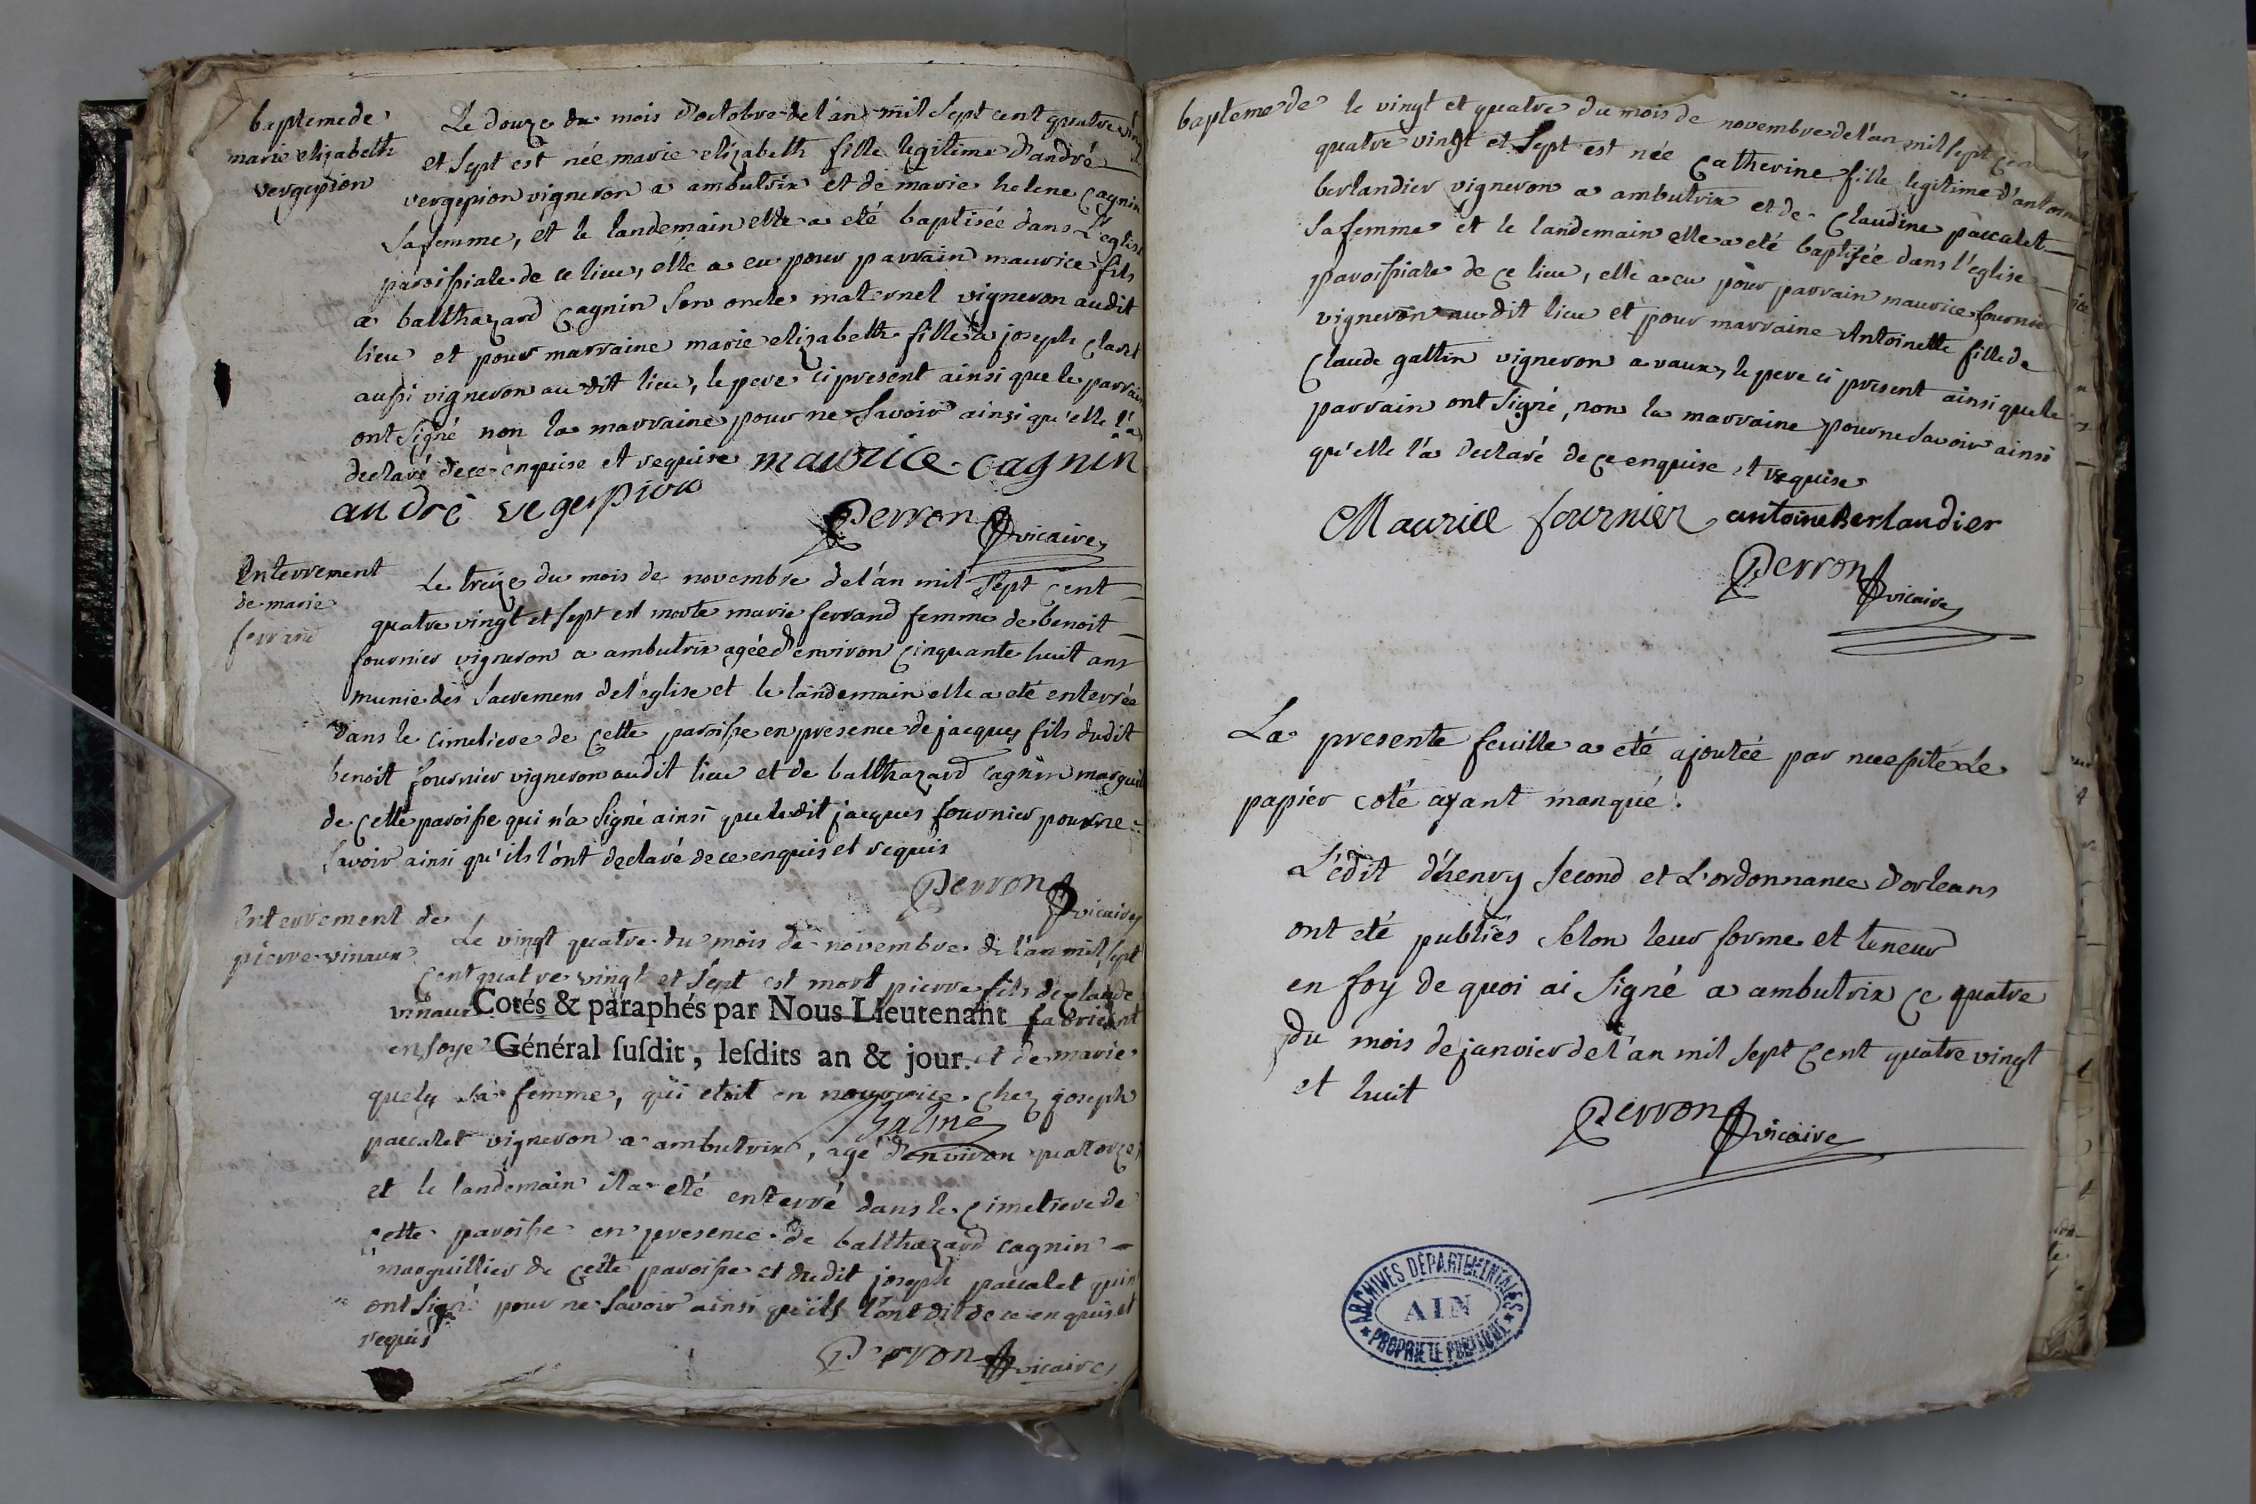 baptemede
marie elizabeth
vergepion
Le douze du mois d'octobre de l'an mil sept cent quatre vingt
et sept est née marie elizabeth fille legitime d'andré
vergepion vigneron a ambutrix et de marie helene cagnin
sa femme, et le landemain elle a eté baptisée dans l'eglise
paroissiale de ce lieu, elle a eu pour parrain maurice fils
a balthazard cagnin son oncle maternel vigneron audit
lieu et pour marraine marie elizabeth fille a joseph claret
aussi vigneron au dit lieu, le pere ci present ainsi que le parrain
ont signé non la marraine pour ne savoir ainsi qu'elle l'a
declaré de ce enquise et requise maurice cagnin
andré vegerpion
Perron vicaire
Enterrement
de marie
ferrand
Le treize du mois de novembre de l'an mil sept cent
quatre vingt et sept est morte marie ferrand femme de benoit
fournier vigneron a ambutrix agée d'environ cinquante huit ans
munie des sacremens de l'église et le landemain elle a eté enterrée
dans le cimetiere de cette paroisse en presence de jacques fils dudit
benoit fournier vigneron audit lieu et de balthazard cagnin marguil
de cette paroisse qui n'a signé ainsi que ledit jacques fournier pour ne
savoir ainsi qu'ils l'ont declaré de ce enquis et requis
Perron vicaire
Enterrement de
pierre vinaux
Le vingt quatre du mois de novembre de l'an mil sept
cent quatre vingt et sept est mort pierre fils de claude
vinaux Cotés & paraphés par Nous Lieutenant fabricant
en soye Général susdit, lesdits an & jour. et de marie
quely sa femme, qui etoit en nourrice chez joseph
paccalet vigneron a ambutrix, agé d'environ quatorze
et le landemain il a eté enterré dans le cimetiere de
cette paroisse en presence de balthazard cagnin
marguillier de cette paroisse et dudit joseph paccalet qui n
ont signé pour ne savoir ainsi qu'ils l'ont dit de ce enquis et
requis
Perron vicaire
bapteme de
le vingt et quatre du mois de novembre de l'an mil sept cen
quatre vingt et sept est née catherine fille legitime d'antoine
berlandier vigneron a ambutrix et de claudine paccalet
sa femme et le landemain elle a eté baptisée dans l'eglise
paroissiale de ce lieu, elle a eu pour parrain maurice fournier
vigneron audit lieu et pour marraine Antoinette fille de
claude gattin vigneron a vaux, le pere ci present ainsi que le
parrain ont signé, non la marraine pour ne savoir ainsi
qu'elle l'a declaré de ce enquise et requise
Maurice fournier antoine Berlandier
Perron vicaire
La presente feuille a eté ajoutée par necessité le
papier coté ayant manqué.
L'édit d'henry second et L'ordonnance d'orleans
ont eté publiés selon leur forme et teneur
en foy de quoi ai signé a ambutrix ce quatre
du mois de janvier de l'an mil sept cent quatre vingt
et huit
Perron vicaire
ARCHIVES DÉPARTEMENTALES
AIN
PROPRIETE PUBLIQUE